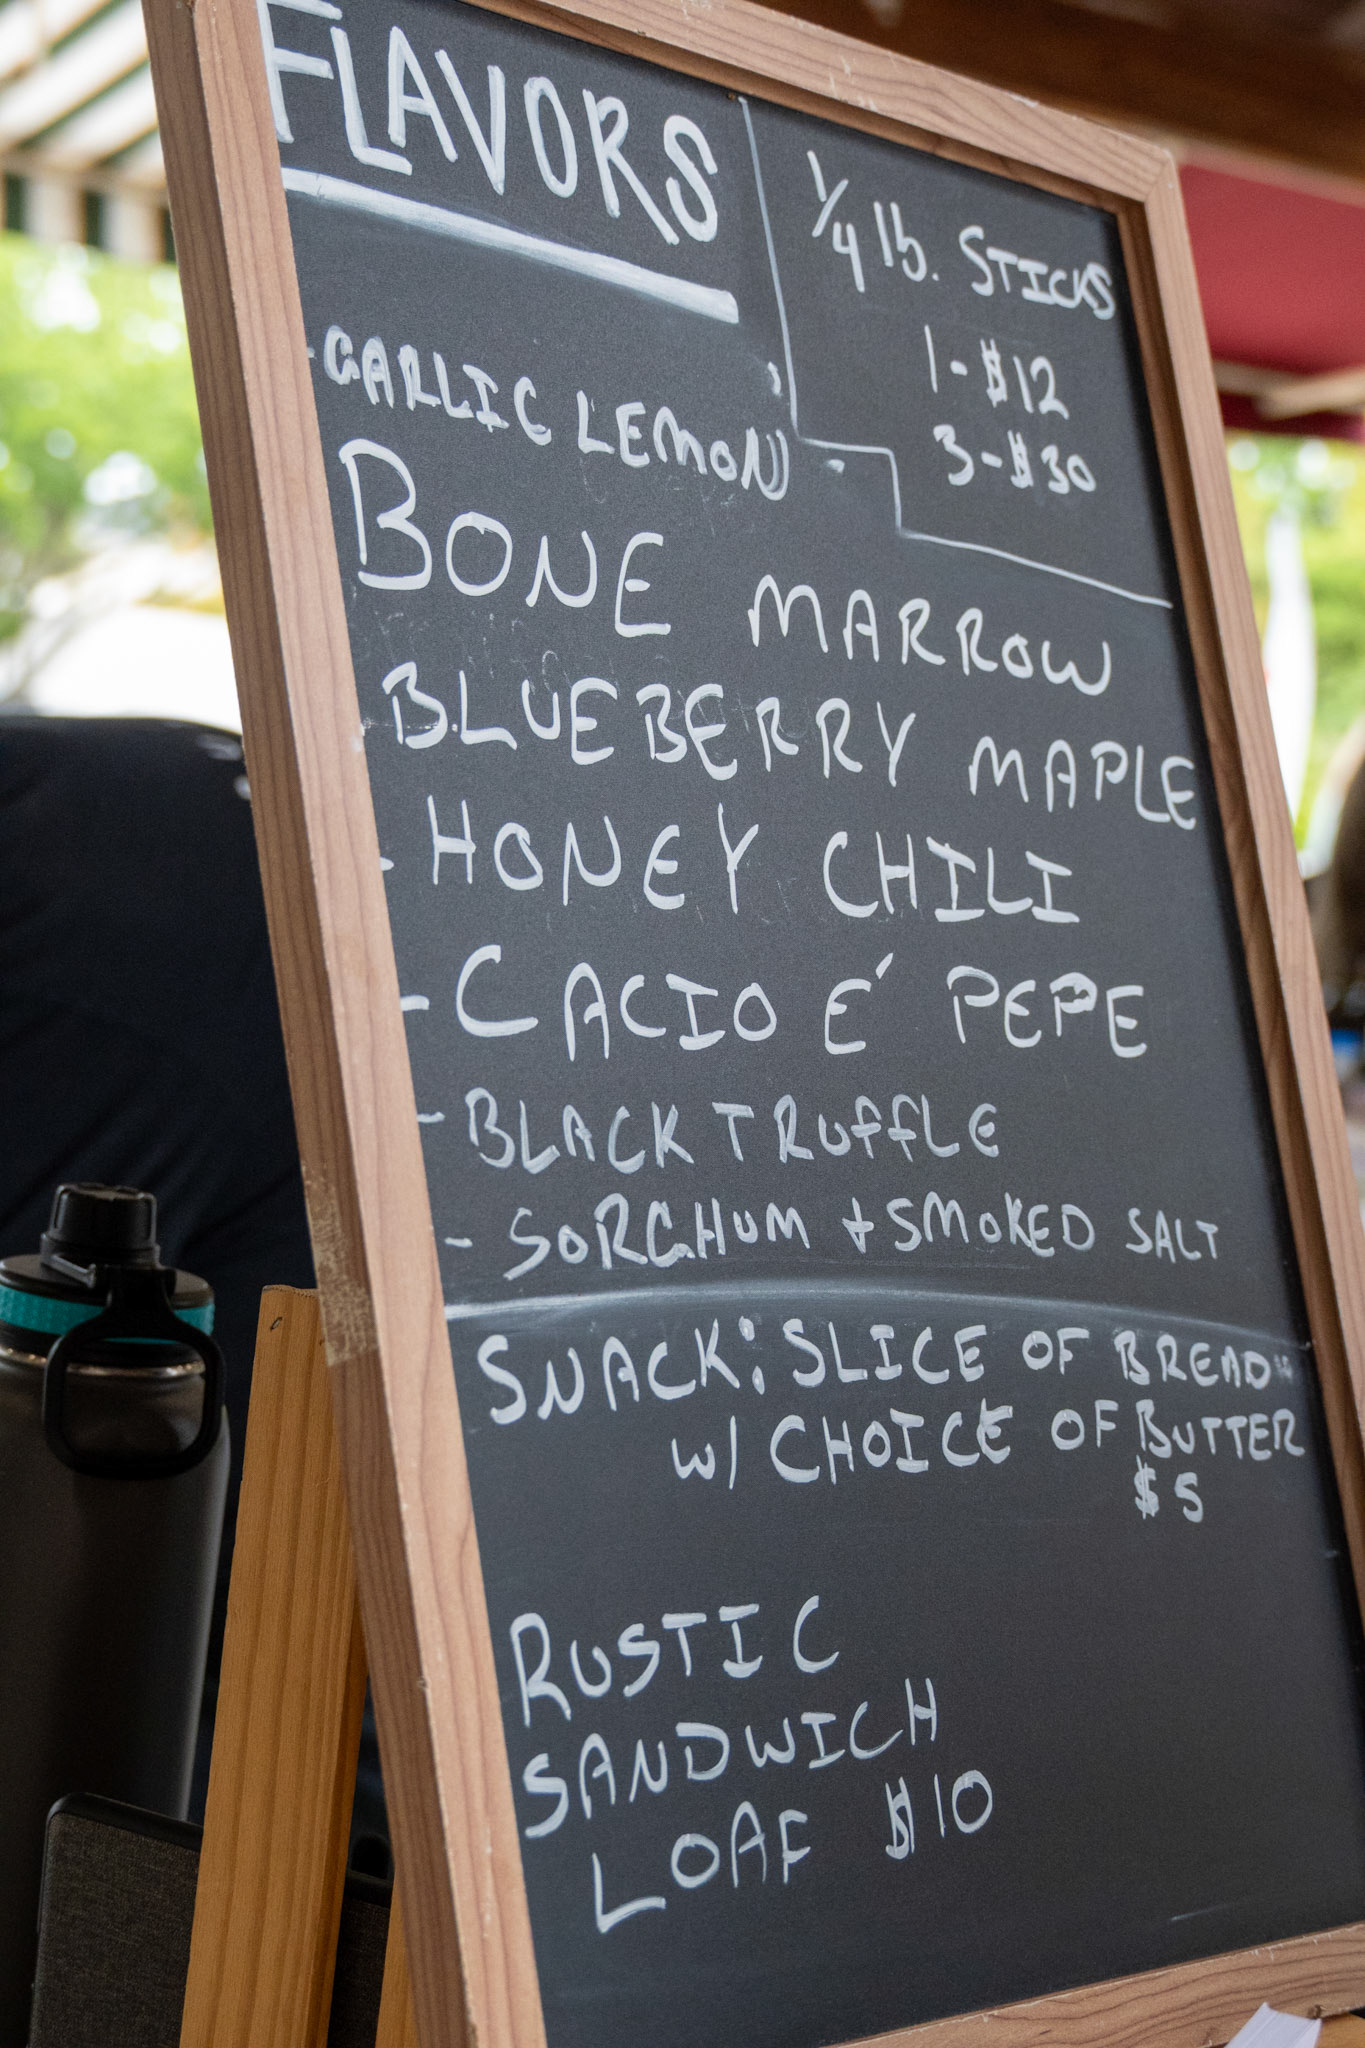 FLAVORS
1/4 lb. STICKS
1 - $12
3 - $30
- GARLIC LEMON
BONE MARROW
BLUEBERRY MAPLE
- HONEY CHILI
- CACIO É PEPE
- BLACK TRUFFLE
- SORGHUM + SMOKED SALT
SNACK: SLICE OF BREAD
W/ CHOICE OF BUTTER
$5
RUSTIC
SANDWICH
LOAF $10